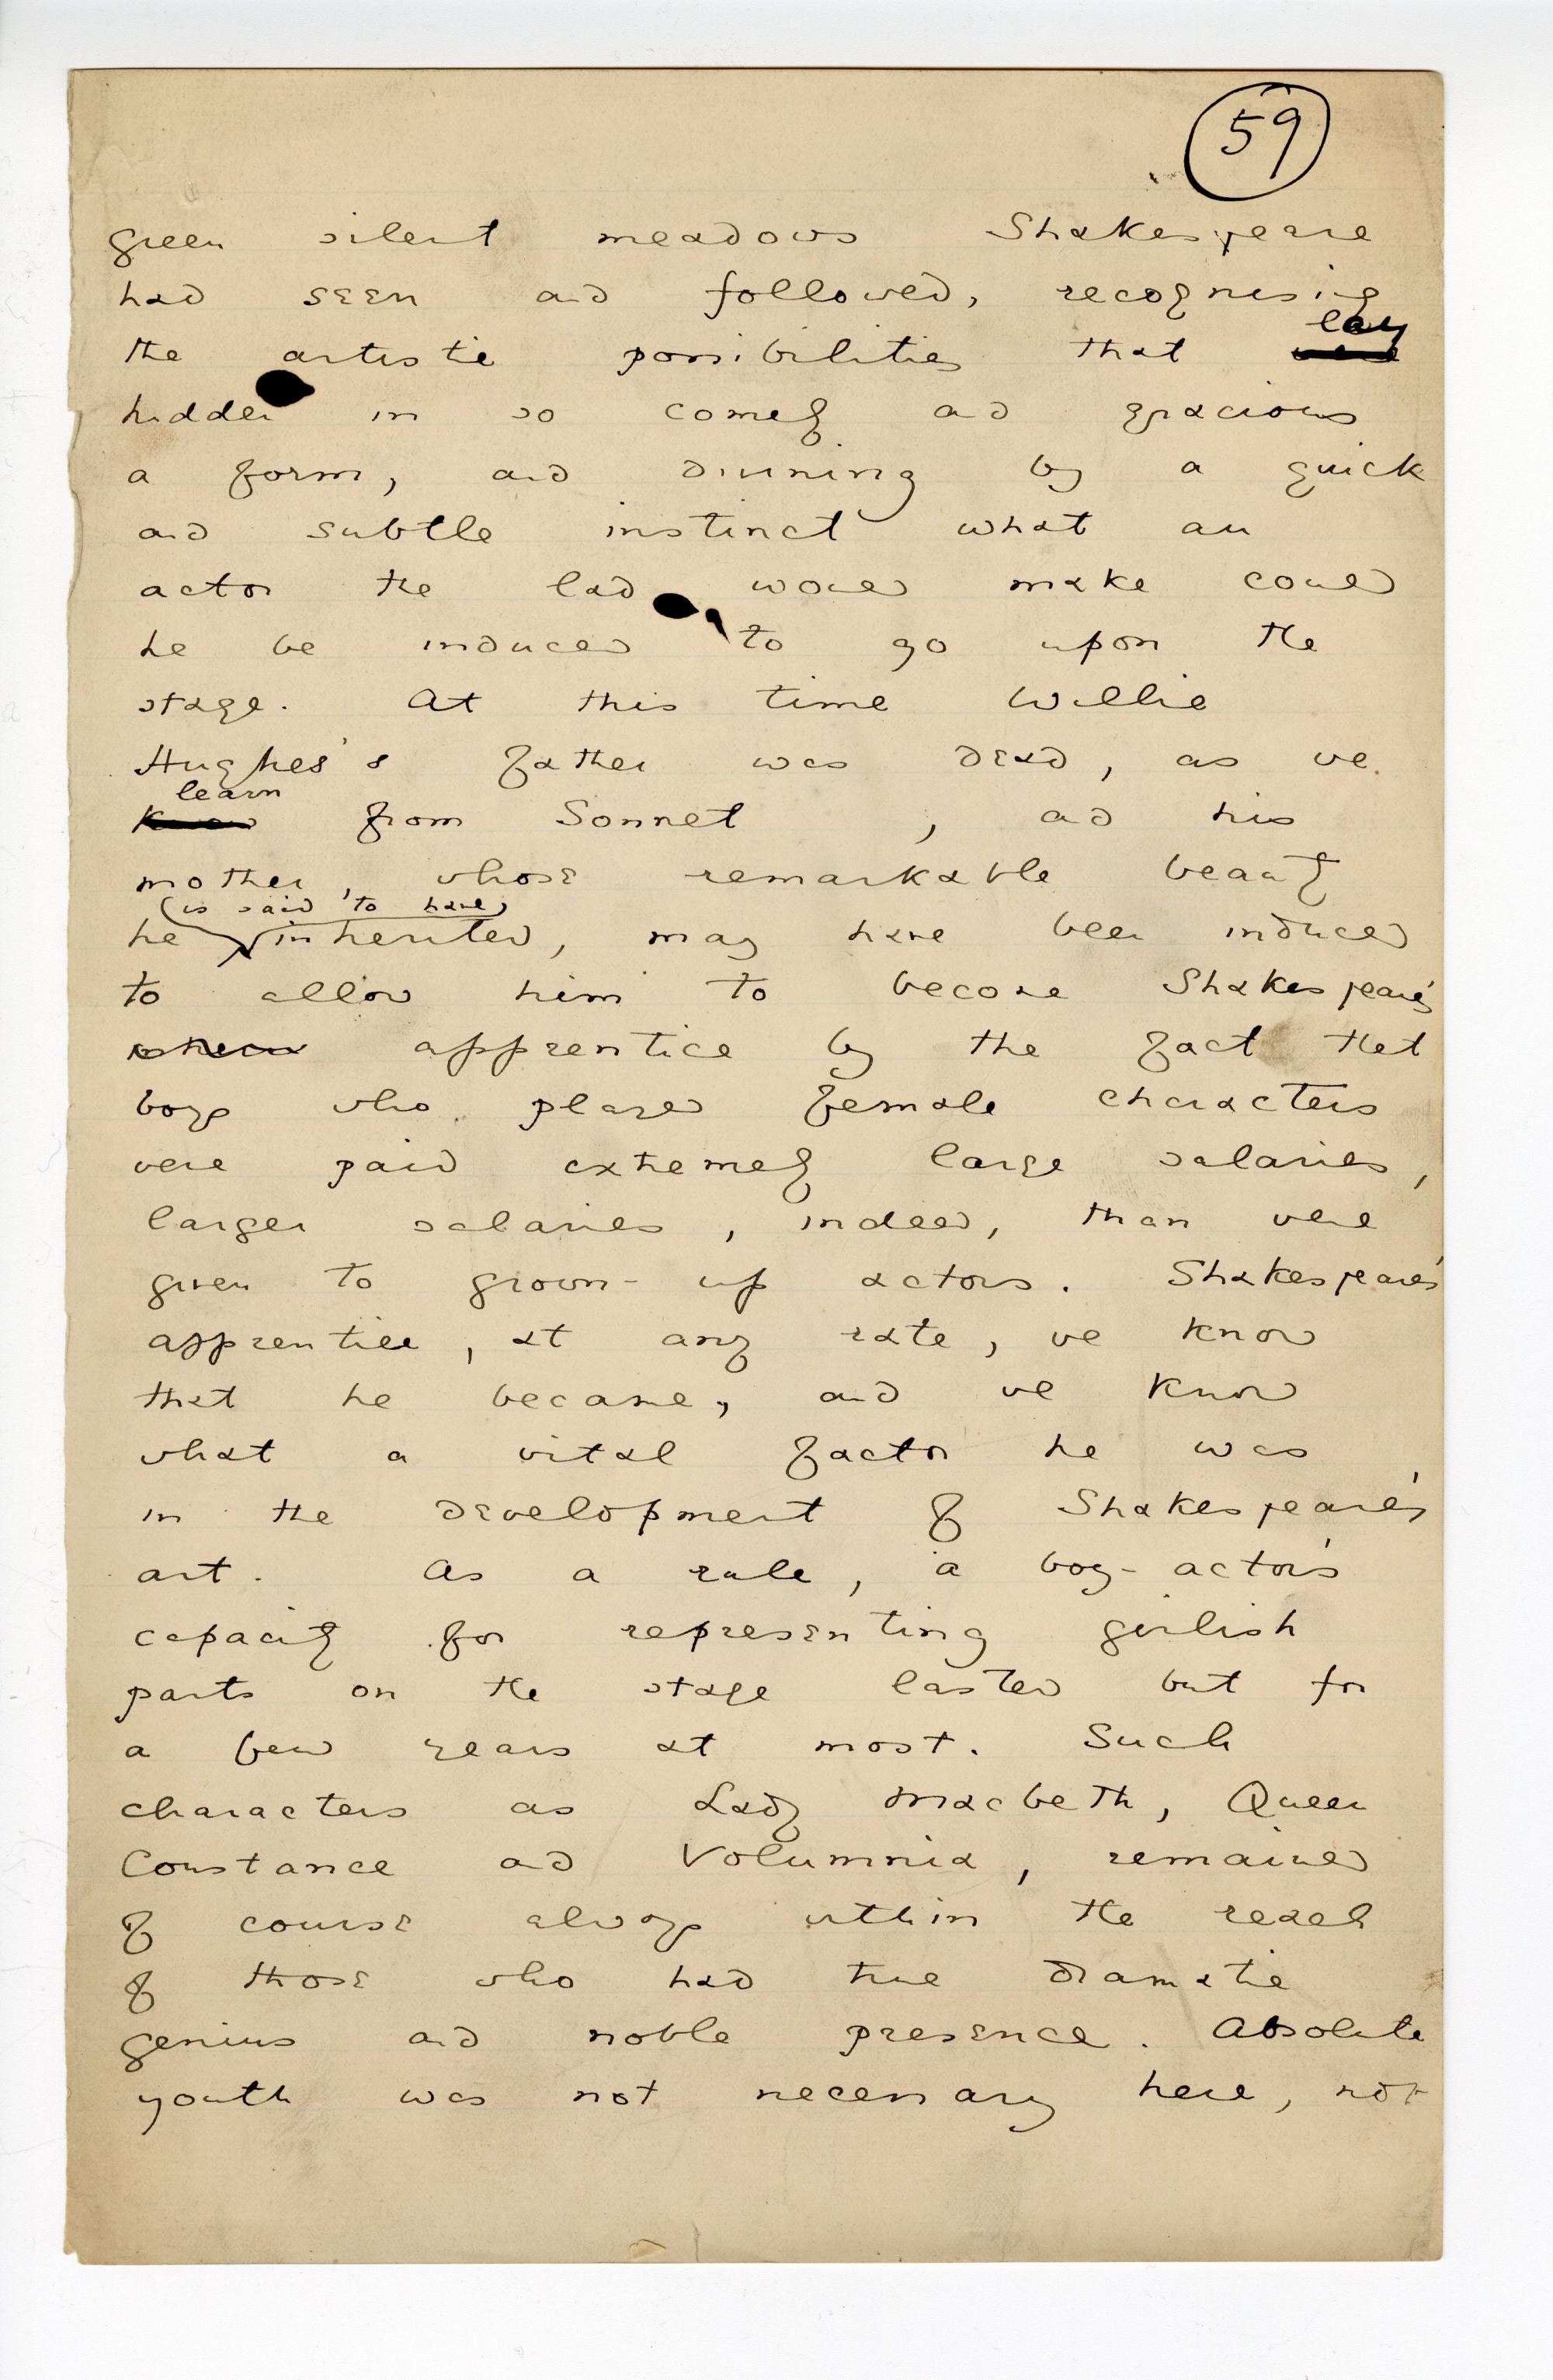 59
green silent meadows Shakespeare
had seen and followed, recognising
lay
the artistic possibilities that were
hidden in so comely and gracious
a form, and divining by a quick
and subtle instinct what an
actor the lad would make could
he be induced to go upon the
stage. At this time Willie
Hughes's father was dead, as we
learn
know from Sonnet , and his
mother, whose remarkable beauty
(is said to have)
he inherited, may have been induced
to allow him to become Shakespeare's
apprentice by the fact that
boys who played female characters
were paid extremely large salaries,
larger salaries, indeed, than were
given to grown-up actors. Shakespeare's
apprentice, at any rate, we know
that he became, and we know
what a vital factor he was
in the development of Shakespeare's
art. As a rule, a boy-actor's
capacity for representing girlish
parts on the stage lasted but for
a few years at most. Such
characters as Lady Macbeth, Queen
Constance and Volumnia, remained
of course always within the reach
of those who had true dramatic
genius and noble presence. Absolute
youth was not necessary here, not